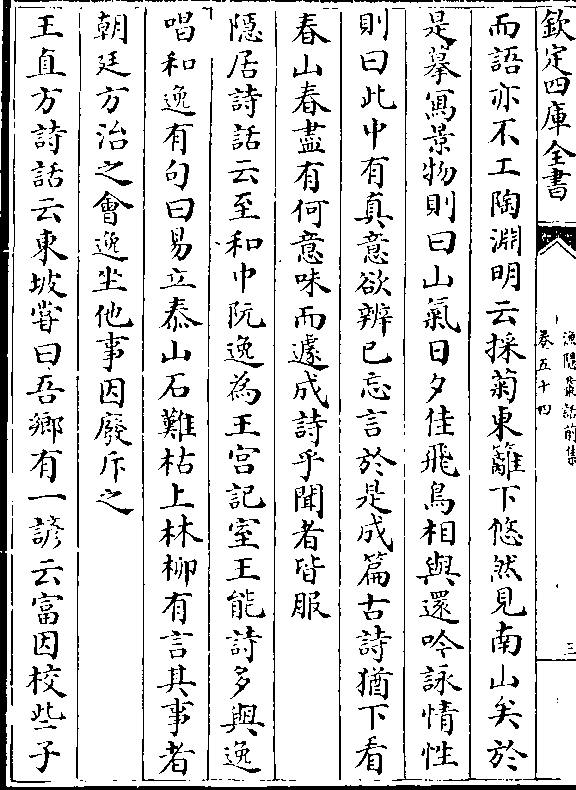 欽定四庫全書
漁隱叢話前集
卷五十四
三
而語亦不工陶淵明云採菊東籬下悠然見南山矣於
是摹寫景物則曰山氣日夕佳飛鳥相與還吟詠情性
則曰此中有真意欲辨已忘言於是成篇古詩猶下看
春山春盡有何意味而遽成詩乎聞者皆服
隱居詩話云至和中阮逸為王宫記室王能詩多與逸
唱和逸有句曰易立泰山石難枯上林柳有言其事者
朝廷方治之會逸坐他事因廢斥之
王直方詩話云東坡甞曰吾鄉有一諺云富因校些子